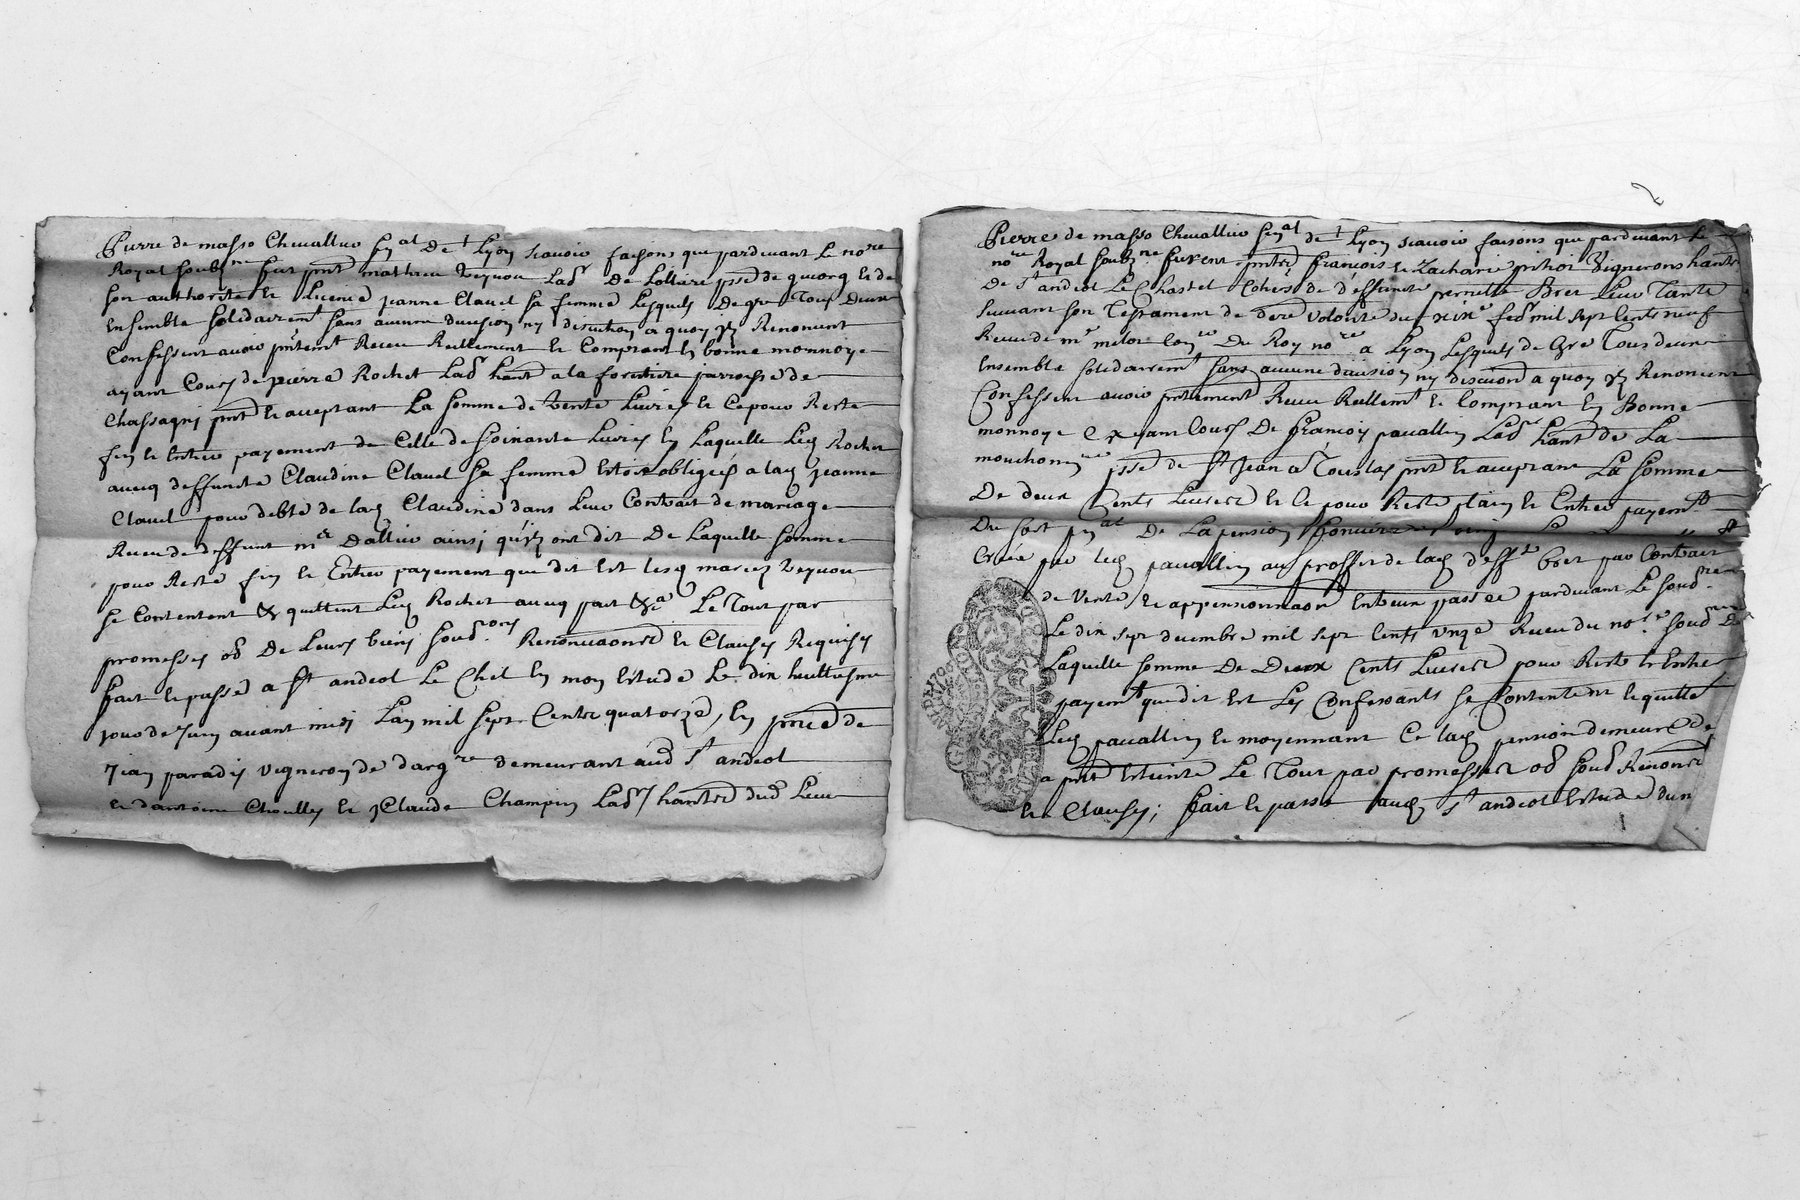 Pierre de masso Chevallier sen.al de Lyon scavoir faisons que pardevant le no.re
Royal soubz.ne fut p.nt mathieu Veynou Lab.r De Lollier p.sse de quorq et de
son authorité et Licence jeanne Clavel sa femme Lesquels De gre Tous Deux
Ensemble solidairem.t sans aucune division ny discution a quoy Ilz Renoncent
Confessent avoir p.ntem.t Receu Reellement et Comptant En bonne monnoye
ayant Cours de pierre Rochet Lab.r hant a la forestiere parroisse de
Chassagny p.nt et acceptant La somme de vente Livres et Ce pour Reste
fin et Entier payement de Celle de soixante Livres En Laquelle Led. Rochet
avecq deffuncte Claudine Clavel sa femme Estoit obligées a lad. jeanne
Clavel pour debte de lad. Claudine dans Leur Contrait de mariage
Receu de deffunt m.e Dallier ainsi qu'ilz ont dit De Laquelle somme
pour Reste fin et Entier payement que dit Est lesd. mariez Veynou
se Contentent & quittent Led. Rochet avecq pact &.a Le Tout par
promesses ob. De Leurs biens soub.ons Renonciaones et Clauses Requises
fait et passé a St andeol Le Ch.el En mon Estude Le dix huitiesme
jour de Juin avant midi L'an mil sept Cents quatorze, En p.nce de
Jean paradis vigneron de darg.re demeurant aud. St andeol
et d'antoine Choully et Claude Champin Lab.rs hants dud. Lieu
Pierre de masso Chevallier sen.al de Lyon scavoir faisons que pardevant le
no.re Royal soubz.ne furent p.nts françois et Zacharie prihor Vignerons hants
De St andeol Le Chastel Cohers de deffuncte pernette Bret Leur Tante
suivant son Testament de dere volonté du xix.e feb.r mil sept Cents neuf
Receu de m.e melor Con.er Du Roy no.re a Lyon Lesquels de Gre Tous deux
Ensemble solidairem.t sans aucune division ny discution a quoy Ilz Renoncent
Confessent avoir p.ntement Receu Reellem.t et Comptant En Bonne
monnoye Ex ayant Cours De françois pavallin Lab.r hant de La
mouchonn.re p.sse de St Jean a Touslas p.nt et acceptant La somme
De deux Cents Livres et Ce pour Reste plain et Entier payem.t
Du sort p.n.al De La pension
Créée par led. pavallin au proffit de lad. deff.te bret par Contrait
de Vente et appensionnaon Entreux passée pardevant Le soub.ne
Le dix sept decembre mil sept Cents unze Receu du no.re soub.ne De
Laquelle somme De Deux Cents Livres pour Reste et Entier
payem.t que dit Est Les Confessants se Contentent et quitte
Led. pavallin et moyennant Ce lad. pension demeure de
a p.nt Esteinte Le Tout par promesses ob. soub. Renon.s
et Clauses; fait et passé aud. St andeol Estude dun